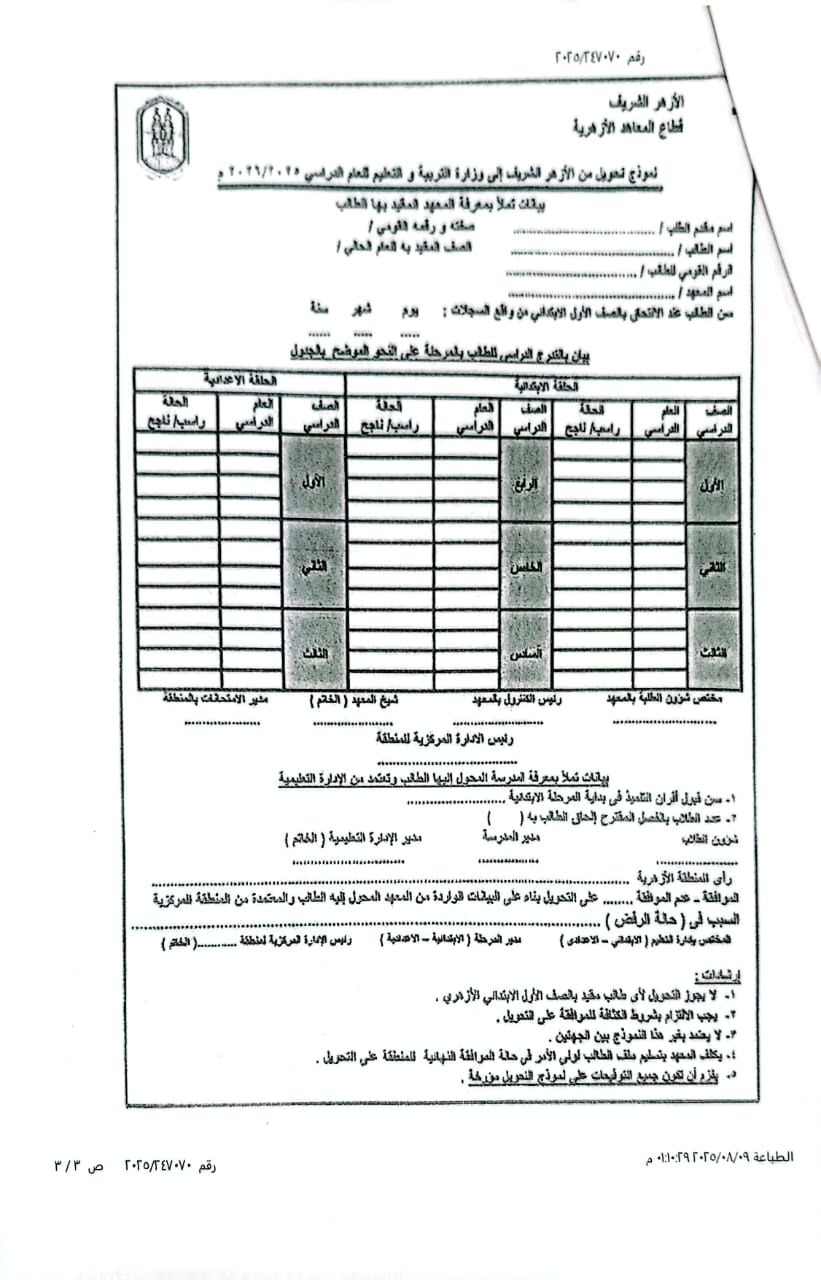 رقم ٢٠٢٥/٢٤٧٠٧٠
الأزهر الشريف
قطاع المعاهد الأزهرية
نموذج تحويل من الأزهر الشريف إلى وزارة التربية و التعليم للعام الدراسي ٢٠٢٦/٢٠٢٥ م
بيانات تملأ بمعرفة المعهد المقيد بها الطالب
اسم مقدم الطلب / .................................... صفته و رقمه القومي /
اسم الطالب / .................................... الصف المقيد به العام الحالي /
الرقم القومي للطالب / ....................................
اسم المعهد / ....................................
سن الطالب عند الالتحاق بالصف الأول الابتدائي من واقع السجلات : يوم شهر سنة
..... ..... ......
بيان بالتدرج الدراسي للطالب بالمرحلة على النحو الموضح بالجدول
الحلقة الابتدائية الحلقة الاعدادية
الصف الدراسي العام الدراسي الحالة راسب/ ناجح الصف الدراسي العام الدراسي الحالة راسب/ ناجح الصف الدراسي العام الدراسي الحالة راسب/ ناجح
الأول الرابع الأول
الثاني الخامس الثاني
الثالث السادس الثالث
مختص شؤون الطلبة بالمعهد رئيس الكنترول بالمعهد شيخ المعهد ( الخاتم ) مدير الامتحانات بالمنطقة
........................ ........................ ........................ ........................
رئيس الادارة المركزية للمنطقة
....................................
بيانات تملأ بمعرفة المدرسة المحول إليها الطالب وتعتمد من الإدارة التعليمية
١- سن قبول أقران التلميذ فى بداية المرحلة الابتدائية ..........................
٢- عدد الطلاب بالفصل المقترح إلحاق الطالب به ( )
شؤون الطلاب مدير المدرسة مدير الإدارة التعليمية ( الخاتم )
.................... ................ ............................
رأى المنطقة الأزهرية ....................................
الموافقة - عدم الموافقة ........ على التحويل بناء على البيانات الواردة من المعهد المحول إليه الطالب والمعتمدة من المنطقة المركزية
السبب فى ( حالة الرفض ) ....................................
المختص بإدارة التعليم ( الابتدائي – الاعدادى ) مدير المرحلة ( الابتدائية – الاعدادية ) رئيس الإدارة المركزية لمنطقة ...........( الخاتم )
إرشادات :
١- لا يجوز التحويل لأى طالب مقيد بالصف الأول الابتدائي الأزهري .
٢- يجب الالتزام بشروط الكثافة للموافقة على التحويل .
٣- لا يعتد بغير هذا النموذج بين الجهتين .
٤- يكلف المعهد بتسليم ملف الطالب لولي الأمر في حالة الموافقة النهائية للمنطقة على التحويل .
٥- يلزم أن تكون جميع التوقيعات على نموذج التحويل مؤرخة .
الطباعة ٢٠٢٥/٠٨/٠٩ ٠١:١٠:٢٩ م رقم ٢٠٢٥/٢٤٧٠٧٠ ص ٣ / ٣